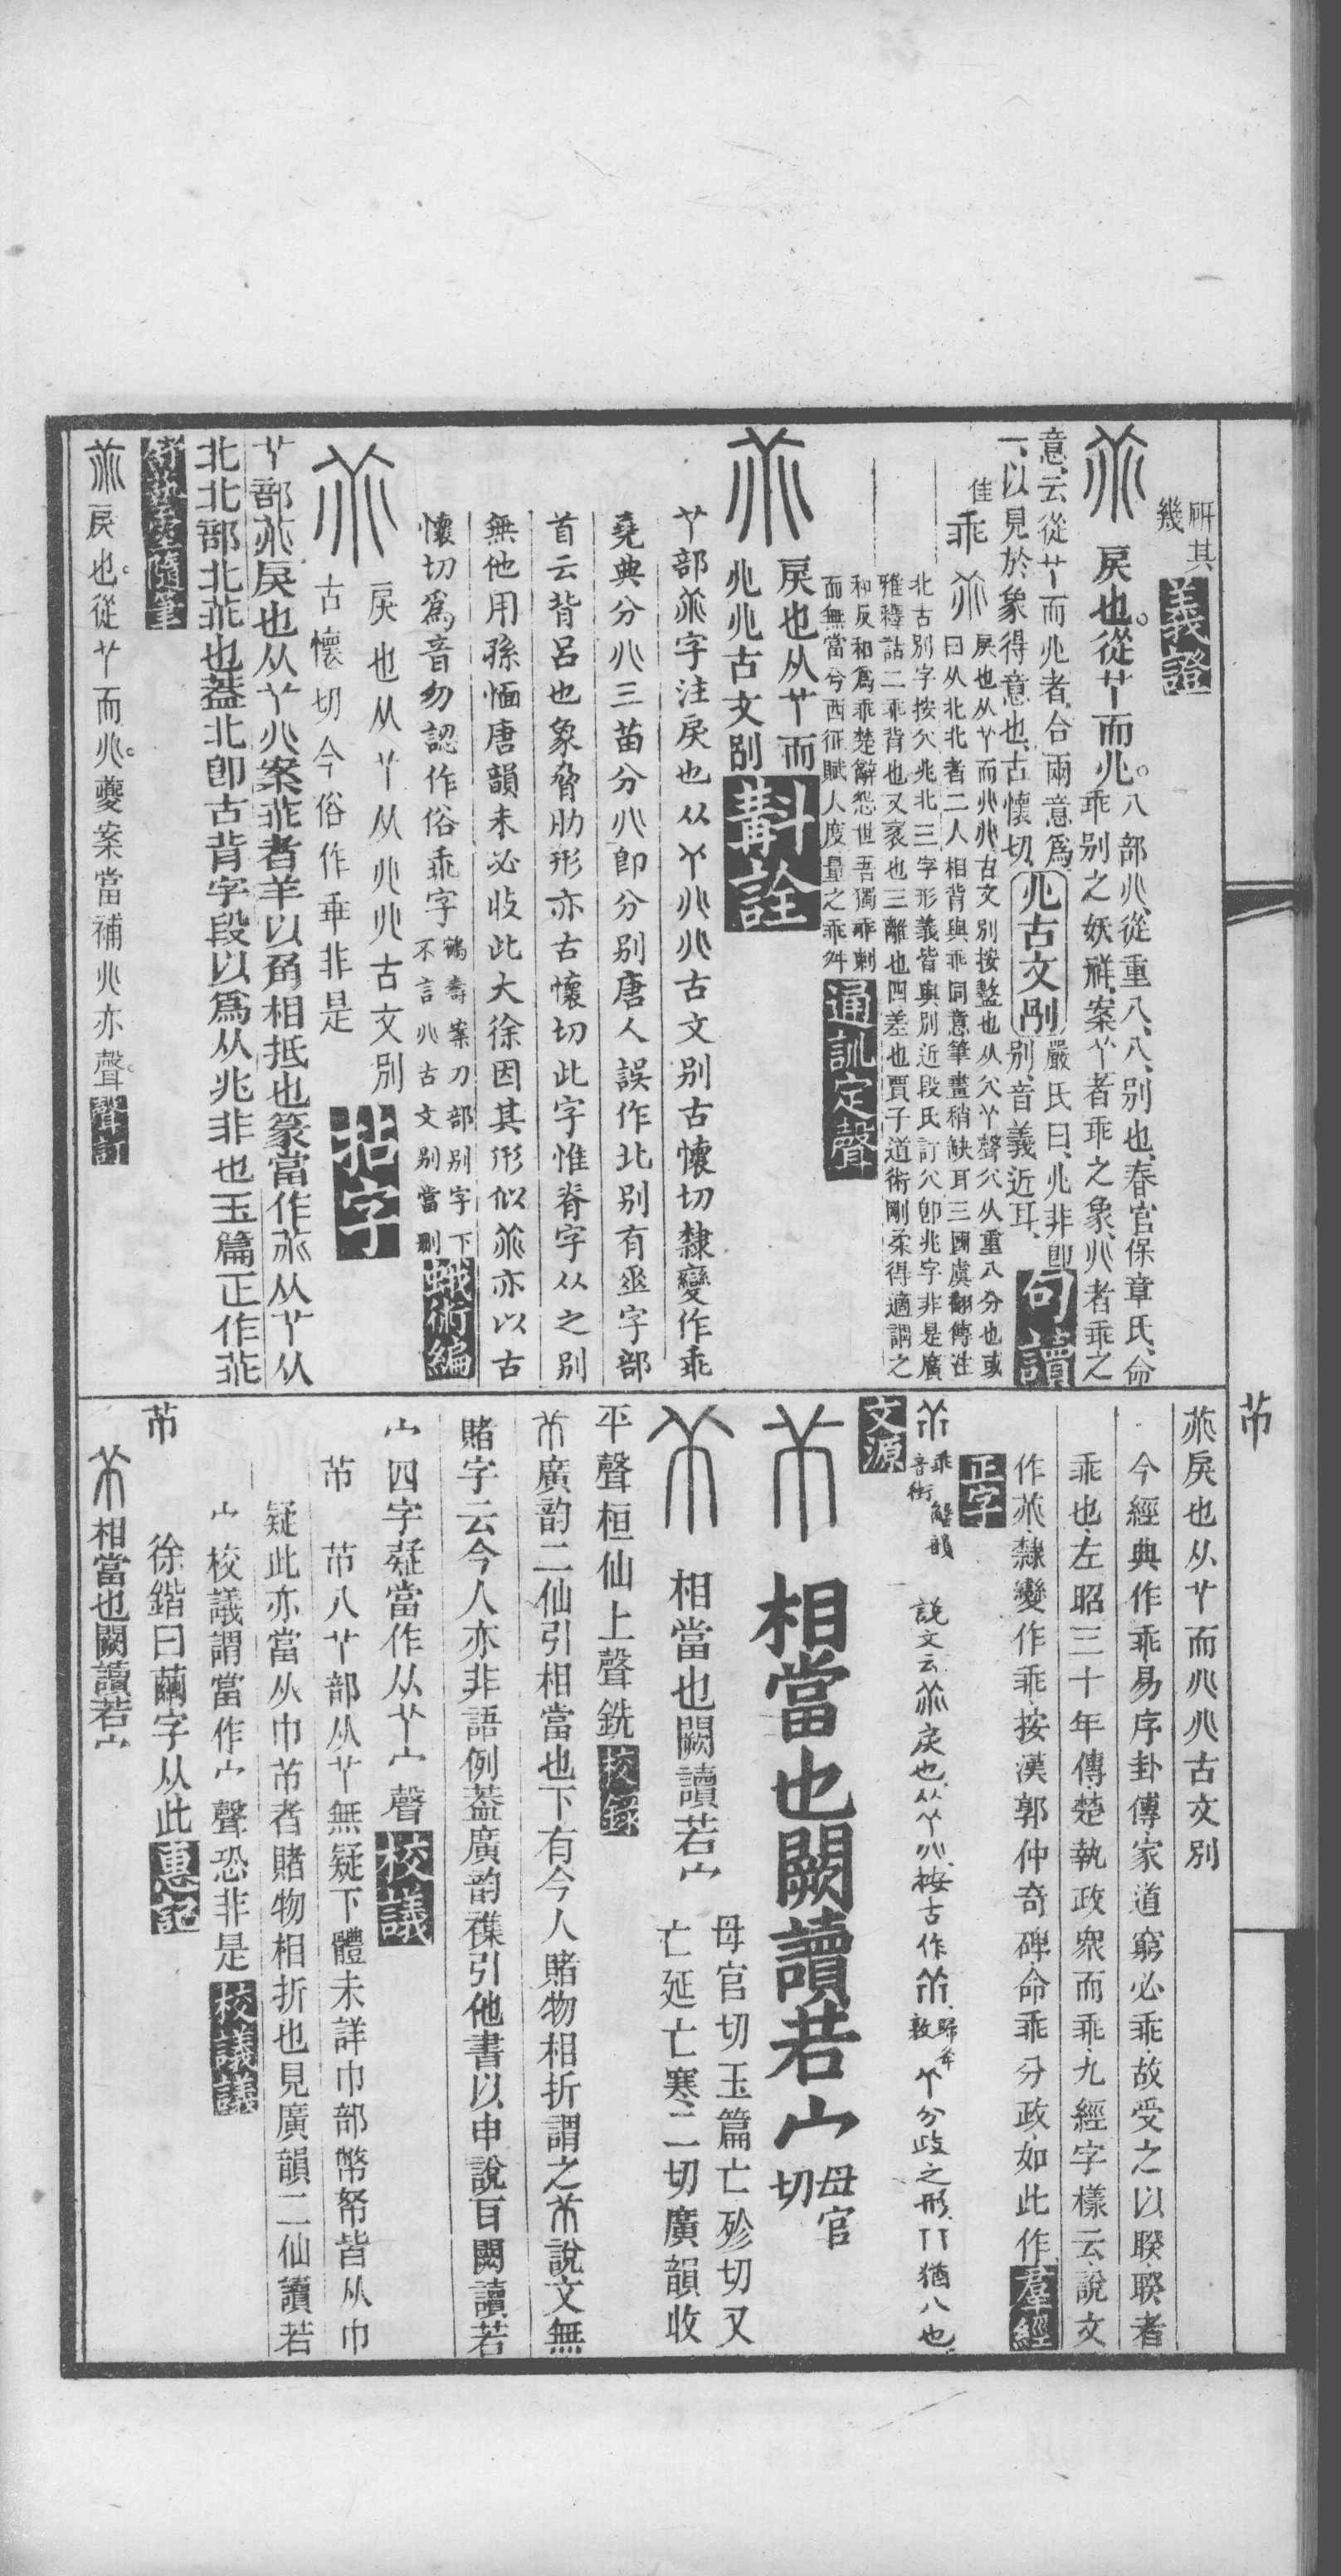 研其
幾
義證
戾也。從𦫳而𠔁。
八部𠔁、從重八、八、別也、春官保章氏、命
乖別之妖祥、案𦫳者乖之象、𠔁者乖之
意、云從𦫳而𠔁者、合兩意爲
一、以見於象得意也、古懷切、
𠔁古文別
嚴氏曰、𠔁非卽
別、音義近耳、
句讀
佳
乖
戾也从𦫳而𠔁𠔁古文別按盭也从穴𦫳聲穴从重八分也或
曰从北北者二人相背與乖同意筆畫稍缺耳三國虞翻傳注
北古別字按穴兆北三字形義皆與別近段氏訂穴卽兆字非是廣
雅釋詁二乖背也又衺也三離也四差也賈子道術剛柔得適謂之
和反和爲乖楚辭怨世吾獨乖剌
而無當兮西征賦人度量之乖舛
通訓定聲
戾也从𦫳而
𠔁𠔁古文別
斠詮
𦫳部𦮃字注戾也从𦫳𠔁𠔁古文別古懷切隸變作乖
堯典分𠔁三苗分𠔁卽分別唐人誤作北別有𠦬字部
首云背呂也象脅肋形亦古懷切此字惟脊字从之別
無他用孫愐唐韻未必收此大徐因其形似𦮃亦以古
懷切爲音勿認作俗乖字
鶴壽案刀部別字下
不言𠔁古文別當刪
蛾術編
戾也从𦫳从𠔁𠔁古文別
古懷切今俗作乖非是
拈字
𦫳部𦮃戾也从𦫳𠔁案𦮃者羊以角相抵也篆當作𦮃从𦫳从
北北部北𦮃也蓋北卽古背字段以爲从兆非也玉篇正作𦮃
隨筆
𦮃戾也。從𦫳而𠔁。夔案當補𠔁亦聲。
聲訂
𦮃戾也从𦫳而𠔁𠔁古文別
今經典作乖易序卦傳家道窮必乖故受之以睽睽者
乖也左昭三十年傳楚執政衆而乖九經字樣云說文
作𦮃隸變作乖按漢郭仲奇碑命乖分政如此作
羣經
正字
乖
音街
解韻
說文云𦮃戾也从𦫳𠔁按古作
歸夆
敦
分歧之形猶八也
文源
相當也闕讀若宀
母官
切
相當也闕讀若宀
母官切玉篇亡殄切又
亡延亡寒二切廣韻收
平聲桓仙上聲銑
校錄
𦭝廣韵二仙引相當也下有今人賭物相折謂之𦭝說文無
賭字云今人亦非語例蓋廣韵襍引他書以申說百闕讀若
宀四字疑當作从𦫳宀聲
校議
𦭝
𦭝八𦫳部从𦫳無疑下體未詳巾部幣帑皆从巾
疑此亦當从巾𦭝者賭物相折也見廣韻二仙讀若
宀校議謂當作宀聲恐非是
校議議
𦭝
徐鍇曰繭字从此
惠記
相當也闕讀若宀
𦭝